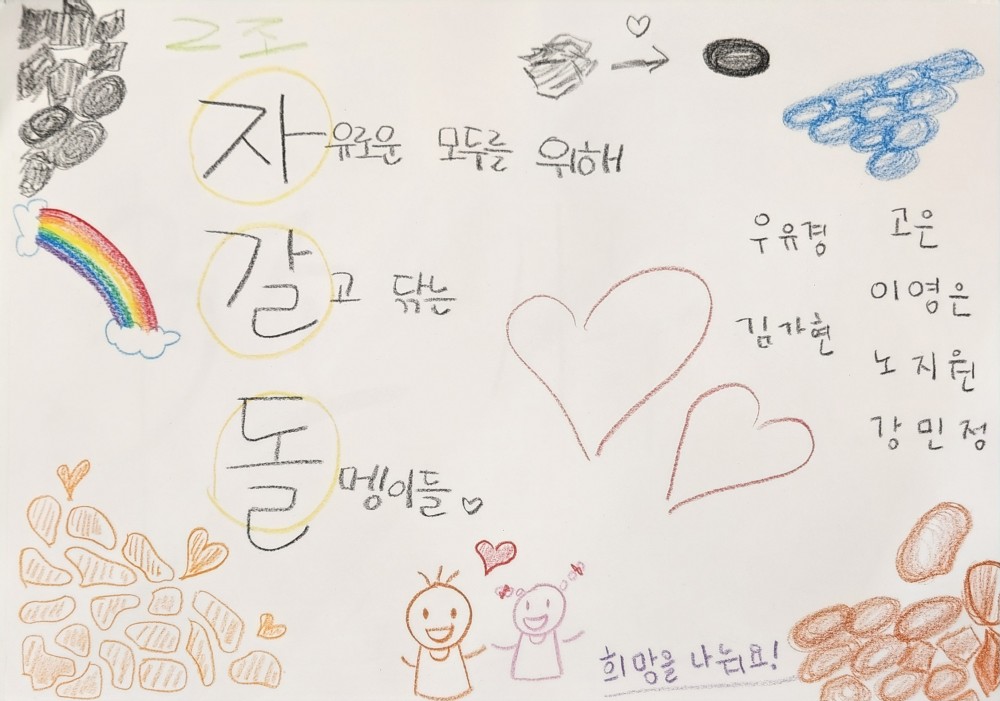 2조
자유로운 모두를 위해
갈고 닦는
돌멩이들
우유경
김가현
고은
이영은
노지원
강민정
희망을 나눠요!